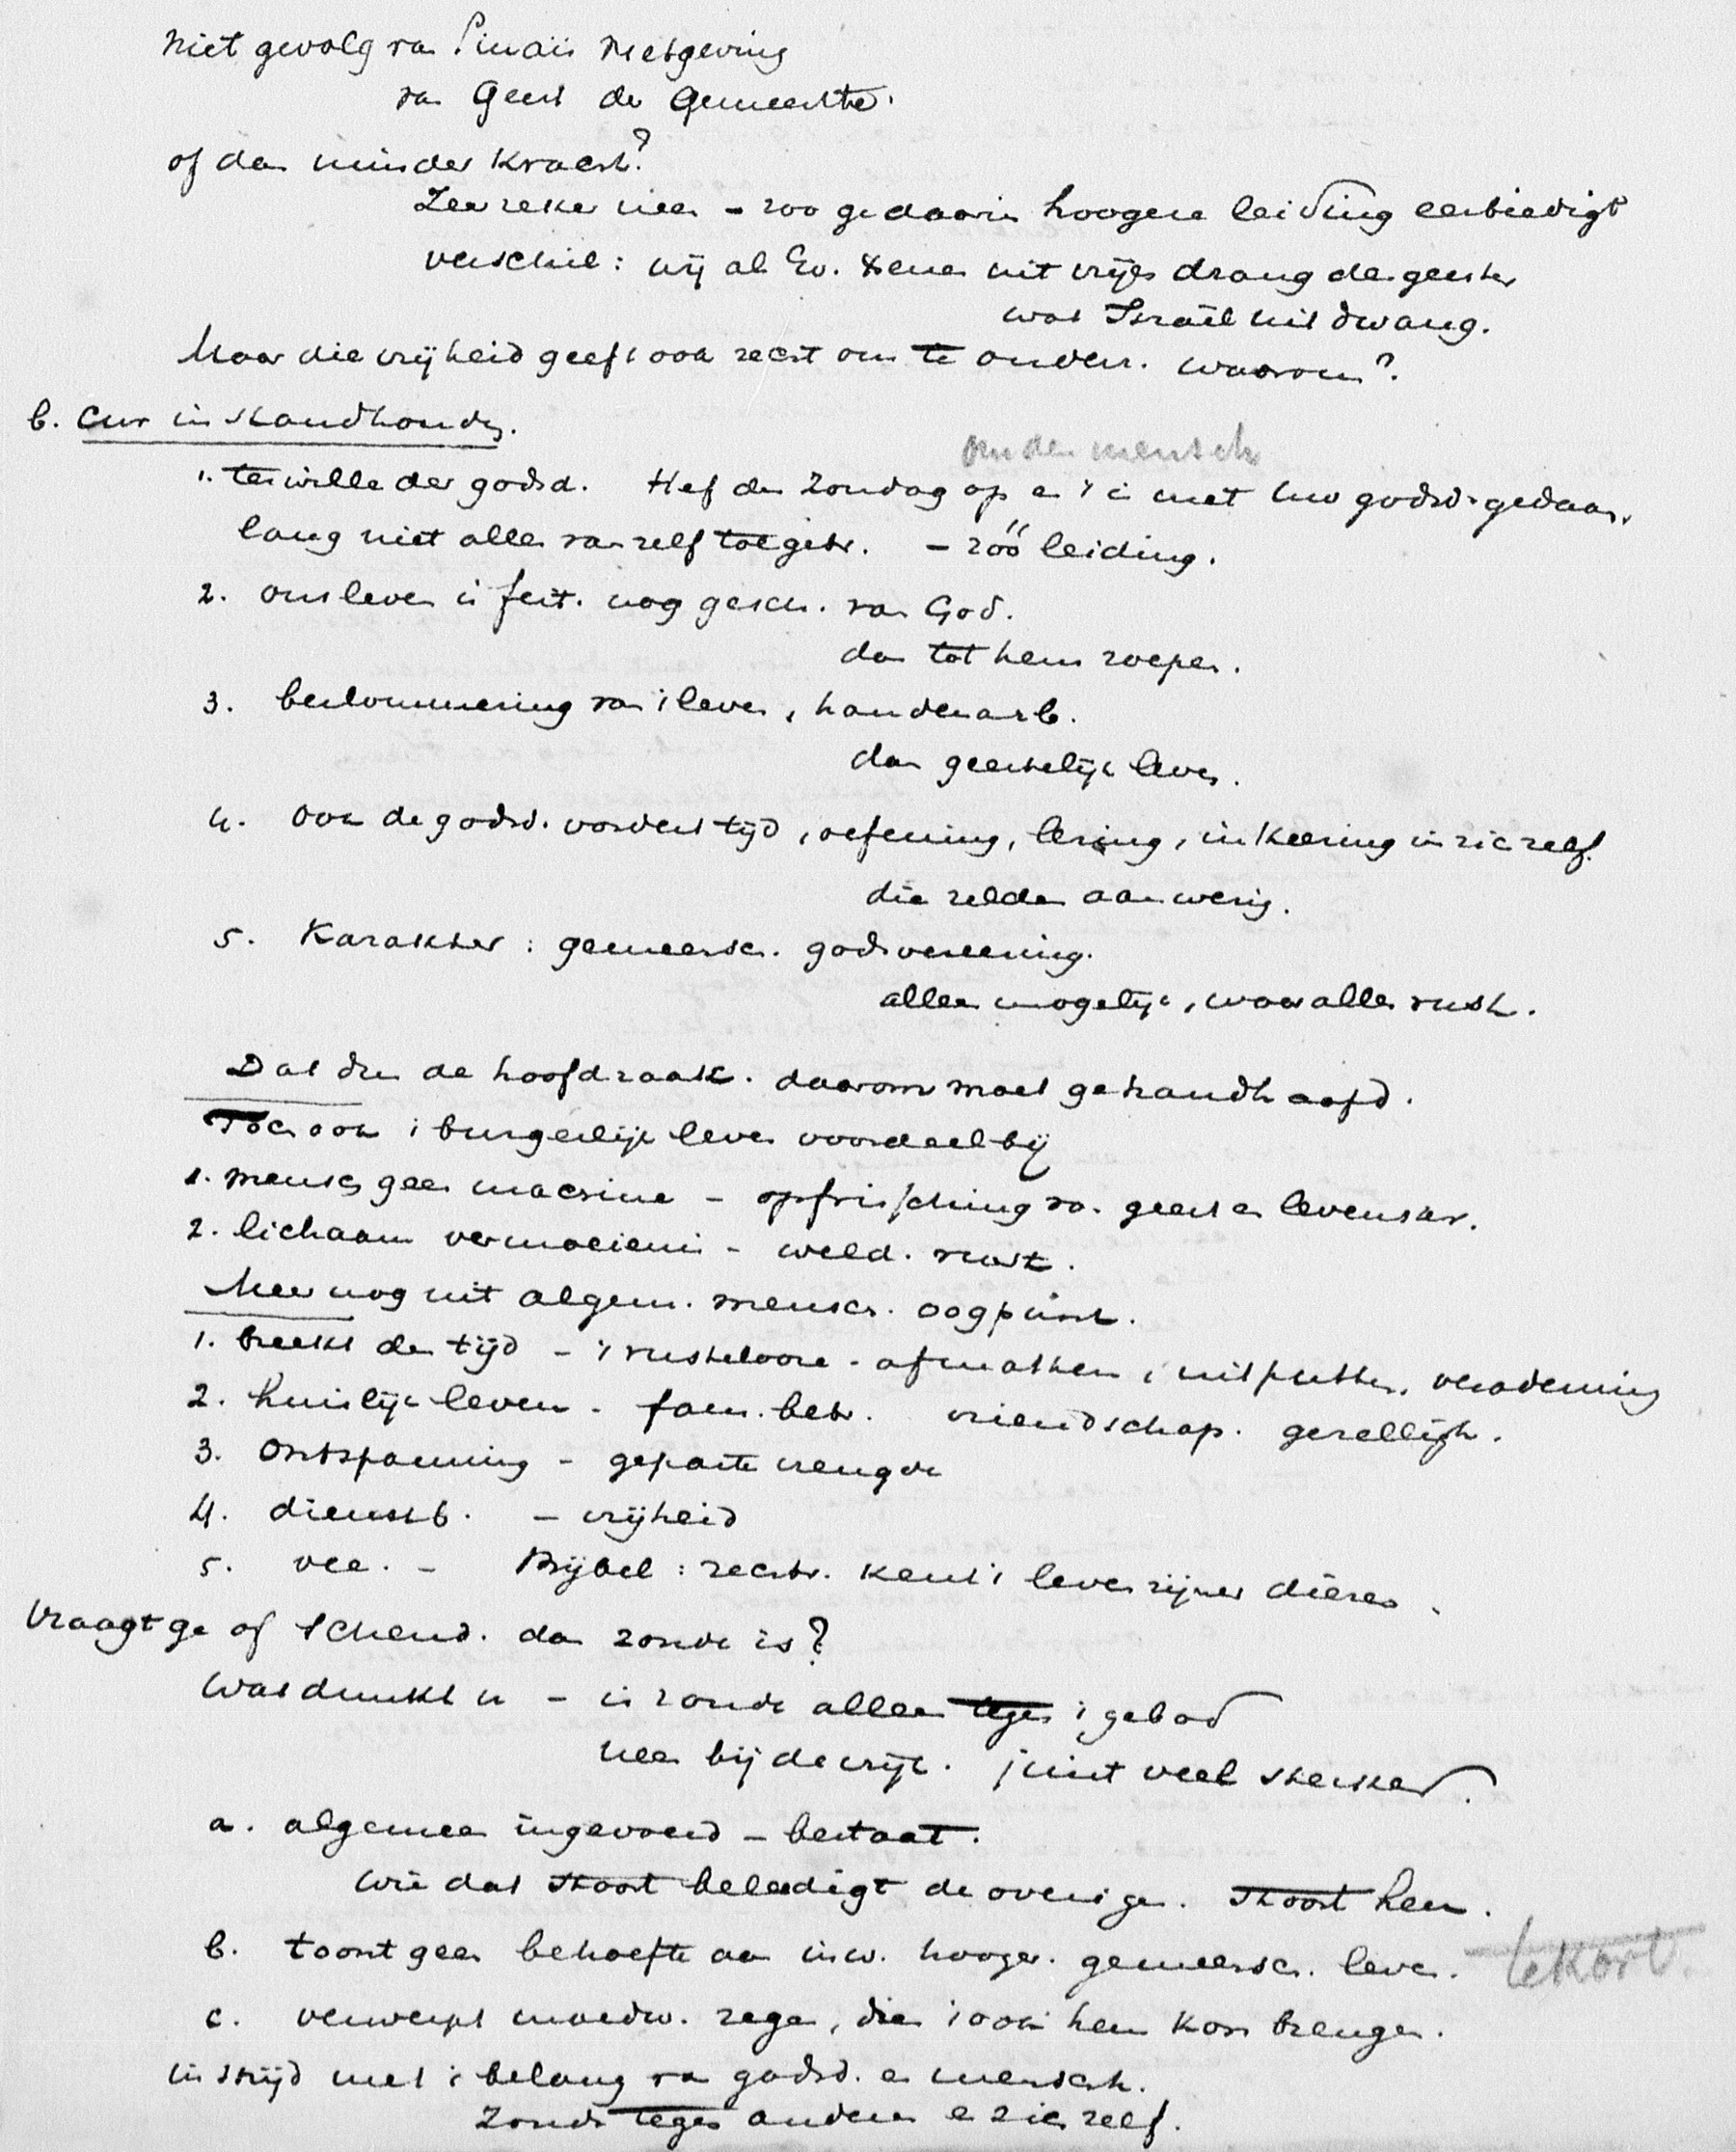 niet gevolg va Sinaii wetgeving
va Geest der Gemeente.
of dan minder kracht?
Zeer zeker neen - zoo ge daarin hoogere leiding eerbiedigt
verschil: wij als Ev. uit vrijen drang des geestes
wat Israël uit dwang.
Maar die vrijheid geeft ook recht om te onderz. waarom?
b. Cur in standhouden.
om den mensch
1. terwille der godsd. Hef den Zondag op en 't is met uw godsd. gedaan.
lang niet alles van zelf toegebr. - zóó leiding.
2. ons leven is feit. nog gesch. van God.
dan tot hem roepen.
3. bekommering van 't leven, handenarb.
dan geestelijk leven.
4. Ook de godsd. vordert tijd, oefening, lering, inkeering in zich zelf.
die zelden aanwezig.
5. Karakter: gemeensch. godsvereering.
alleen mogelijk, waar alles rust.
Dat dus de hoofdzaak. daarom moet gehandhaafd.
Toch ook 't burgerlijk leven voordeel bij
1. mensch geen machine - opfrissching va. geest en levenskr.
2. lichaam vermoeienis - weld. rust.
Meer nog uit algem. mensch. oogpunt.
1. breekt den tijd - 't rustelooze - afmatten, uitputten, verademing
2. huislijk leven - fam. betr. vriendschap. gezelligh.
3. Ontspanning - gepaste vreugde
4. dienstb. - vrijheid
5. vee. - Bijbel: rechtv. kent 't leven zijner dieren.
Vraagt ge of schend. dan zonde is?
Wat dunkt u - is zonde alleen tegen 't gebod
neen bij de vrijh. juist veel sterker.
a. algemeen ingevoerd - bestaat.
wie dat stoort beleedigt de overigen. stoort hen.
b. toont geen behoefte aan inw. hooger. gemeensch. leven. tekort.
c. verwerpt moedw. zegen, dien 't ook hem kon brengen.
in strijd met 't belang van godsd. en mensch.
Zonde tegen anderen en zich zelf.